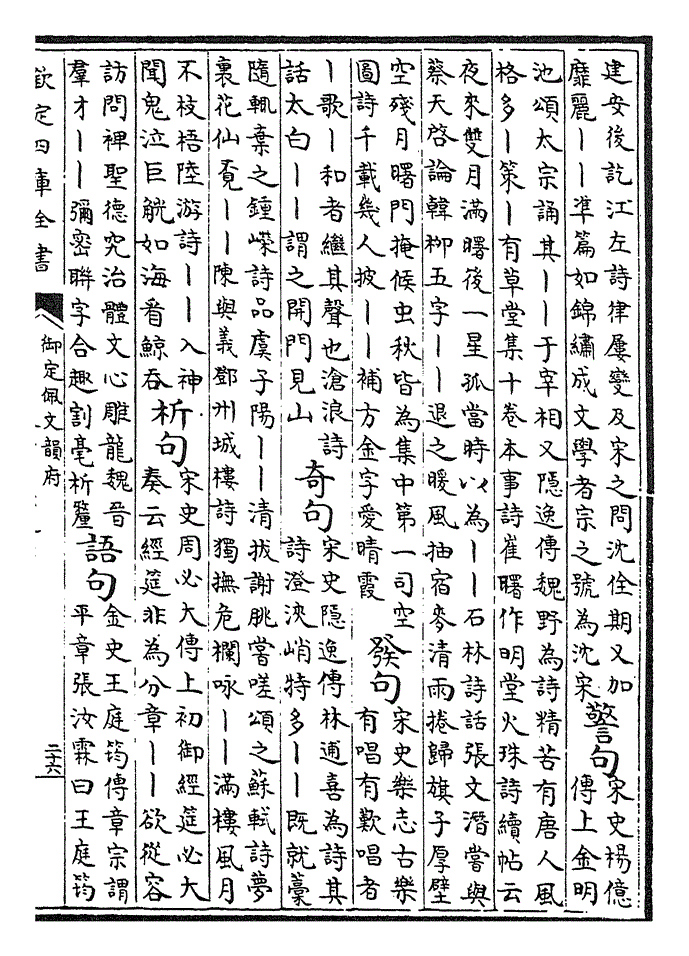 建安後訖江左詩律屢變及宋之問沈佺期又加
靡麗丨丨準篇如錦繡成文學者宗之號為沈宋
警句
宋史楊億
傳上金明
池頌太宗誦其丨丨于宰相又隱逸傳魏野為詩精苦有唐人風
格多丨策丨有草堂集十卷本事詩崔曙作明堂火珠詩續帖云
夜來雙月滿曙後一星孤當時以為丨丨石林詩話張文潛嘗與
蔡天啓論韓柳五字丨丨退之暖風抽宿麥清雨捲歸旗子厚壁
空殘月曙門掩候虫秋皆為集中第一司空
圖詩千載幾人披丨丨補方金字愛晴霞
發句
宋史樂志古樂
有唱有歎唱者
丨歌丨和者繼其聲也滄浪詩
話太白丨丨謂之開門見山
奇句
宋史隱逸傳林逋喜為詩其
詩澄浹峭特多丨丨既就藁
隨輒棄之鍾嶸詩品虞子陽丨丨清拔謝朓嘗嗟頌之蘇軾詩夢
裏花仙覔丨丨陳與義鄧州城樓詩獨撫危欄咏丨丨滿樓風月
不枝梧陸游詩丨丨入神
聞鬼泣巨觥如海看鯨吞
析句
宋史周必大傳上初御經筵必大
奏云經筵非為分章丨丨欲從容
訪問裨聖德究治體文心雕龍魏晉
羣才丨丨彌密聮字合趣割毫析釐
語句
金史王庭筠傳章宗謂
平章張汝霖曰王庭筠
欽定四庫全書
御定佩文韻府
二十六